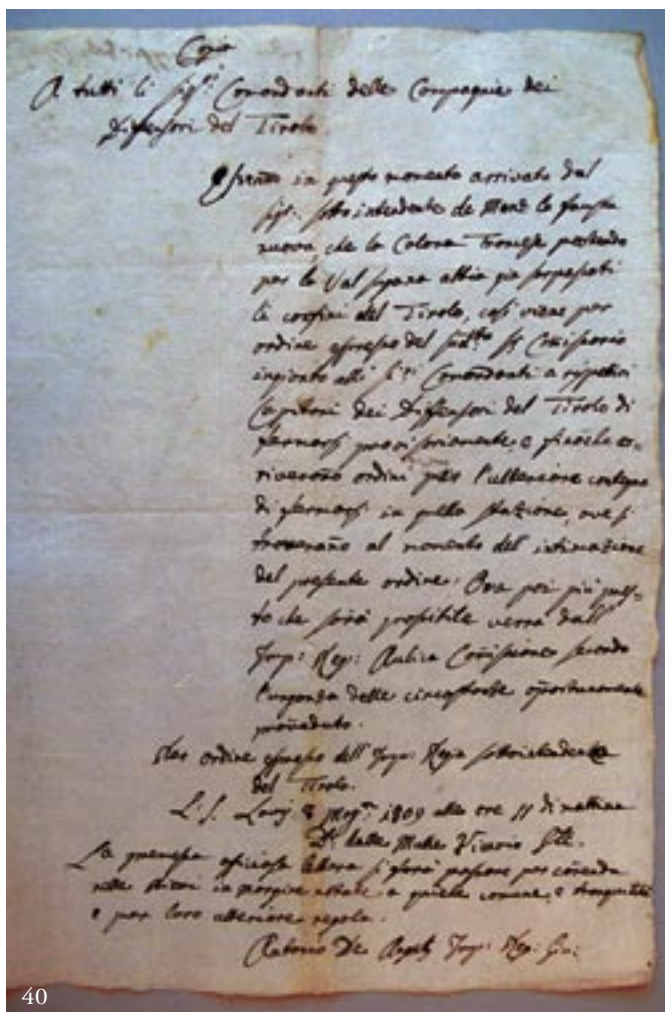 Copia
A tutti li Sig.ri Comandanti delle Compagnie dei
Diffensori del Tirolo.
Essendo in questo momento arrivata dal
Sig.r sotto intendente de la fausta
nuova, che la Colona passando
per la Val sugana abbia già sorpassati
li confini del Tirolo, così viene per
ordine espresso del sud.to Comissario
ingionto alli Comandanti a rispetivi
Capitani dei Diffensori del Tirolo di
fermarsi provisoriamente, e finochè ar-
riverano ordini per l'ulteriore contegno
di fermarsi in quella stazione, ove si
troverano al momento del intimazione
del presente ordine. Ora poi più pres-
to che sarà possibile verrà dall'
Imp: Reg: Aulica Comissione secondo
l'urgenza delle circostanze oportunamente
proveduto.
Per ordine espresso dell' Imp: Regia sottointendenza
del Tirolo.
L. S. 8 1809 alle ore 11 di mattina
Dalle Mulle Vicario
La premessa officiosa lettera si farà passare per
nelle in margine notate, a quiete comune, e tranquilità
e per loro ulteriore regola.
Antonio De Imp: Reg:
40